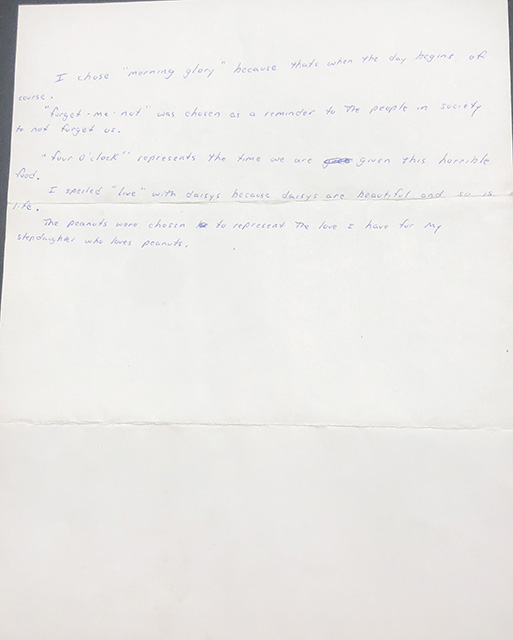 I chose "morning glory" because thats when the day begins, of
course.
"forget-me-not" was chosen as a reminder to the people in society
to not forget us.
"four O'clock" represents the time we are given this horrible
food.
I spelled "live" with daisys because daisys are beautiful and so is
life.
The peanuts were chosen to represent the love I have for my
stepdaughter who loves peanuts.